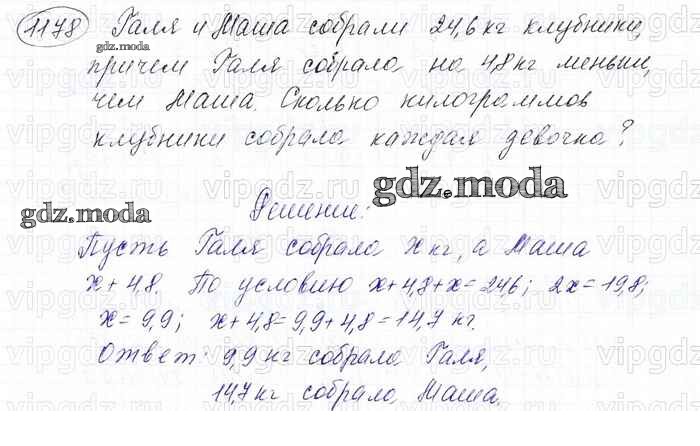 1178 Галя и Маша собрали 24,6 кг клубники,
gdz.moda
причем Галя собрала на 4,8 кг меньше,
чем Маша. Сколько килограммов
клубники собрала каждая девочка?
gdz.moda
Решение:
gdz.moda
Пусть Галя собрала x кг, а Маша
x + 4,8. По условию x+4,8+x=24,6; 2x=19,8;
x=9,9; x+4,8=9,9+4,8=14,7 кг.
Ответ: 9,9 кг собрала Галя,
14,7 кг собрала Маша.